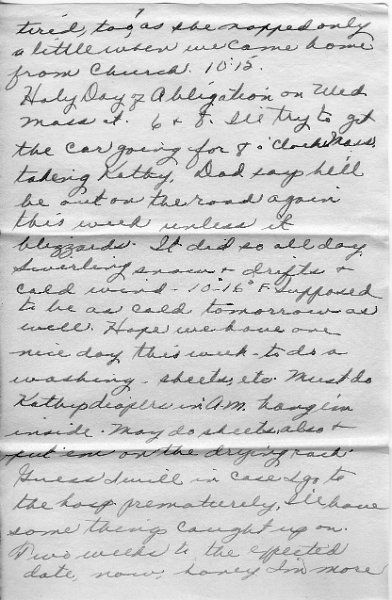 tired, too, as she napped only
a little when we came home
from Church. 10:15.
Holy Day of Obligation on Wed
Mass at 6 + 8. I'll try to get
the car going for 8 o'clock Mass,
taking Kathy. Dad says he'll
be out on the road again
this week unless it
blizzards. It did so all day,
Swirling snow + drifts +
cold wind - 10-16° F. Supposed
to be as cold tomorrow as
well. Hope we have one
nice day this week - to do a
washing - sheets, etc. Must do
Kathy diapers in A.M. hang 'em
inside. May do sheets, also +
put 'em on the drying rack.
Guess I will in case I go to
the hosp prematurely, I'll have
some things caught up on.
Two weeks to the expected
date, now, honey I'm more